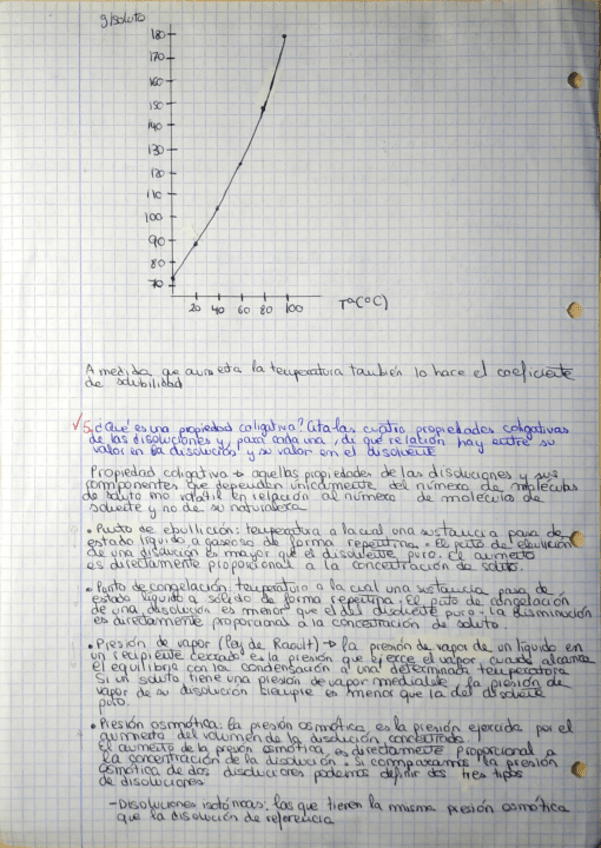 g/soluto
180
170
160
150
140
130
120
110
100
90
80
70
20 40 60 80 100 Tª(ºC)
A medida que aumeta la temperatura también lo hace el coeficiente
de solubilidad
5. ¿Qué es una propiedad coligativa? Cita las cuatro propiedades coligativas
de las disoluciones y, para cada una, di qué relación hay entre su
valor en la disolución y su valor en el disolvente
Propiedad coligativa → aquellas propiedades de las disoluciones y sus
componentes que dependen únicamente del número de moléculas
de soluto no volátil en relación al número de moléculas de
solvente y no de su naturaleza
• Punto de ebullición: temperatura a la cual una sustancia pasa de
estado líquido a gaseoso de forma repentina. El punto de ebullición
de una disolución es mayor que el disolvente puro. El aumento
es directamente proporcional a la concentración de soluto.
• Punto de congelación: temperatura a la cual una sustancia pasa de
estado líquido a sólido de forma repentina. El punto de congelación
de una disolución es menor que el del disolvente puro. La disminución
es directamente proporcional a la concentración de soluto.
• Presión de vapor (Ley de Raoult) → la presión de vapor de un líquido en
un recipiente cerrado es la presión que ejerce el vapor, cuando alcanza
el equilibrio con la condensación a una determinada temperatura
Si un soluto tiene una presión de vapor medible, la presión de
vapor de su disolución siempre es menor que la del disolvente
puro.
• Presión osmótica: la presión osmótica es la presión ejercida por el
aumento del volumen de la disolución concentrada.
El aumento de la presión osmótica, es directamente proporcional a
la concentración de la disolución. Si comparamos la presión
osmótica de dos disoluciones podemos definir dos tres tipos
de disoluciones
- Disoluciones isotónicas: las que tienen la misma presión osmótica
que la disolución de referencia